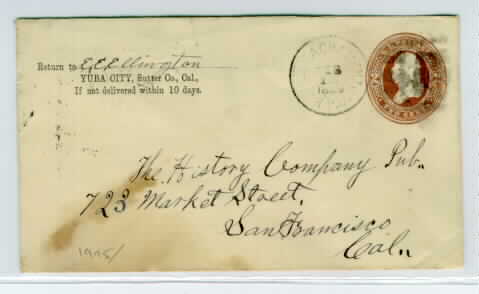 Return to E. E. Ellington
YUBA CITY, Sutter Co., Cal.,
If not delivered within 10 days.
FEB
The History Company Pub.
723 Market Street.
San Francisco
Cal.